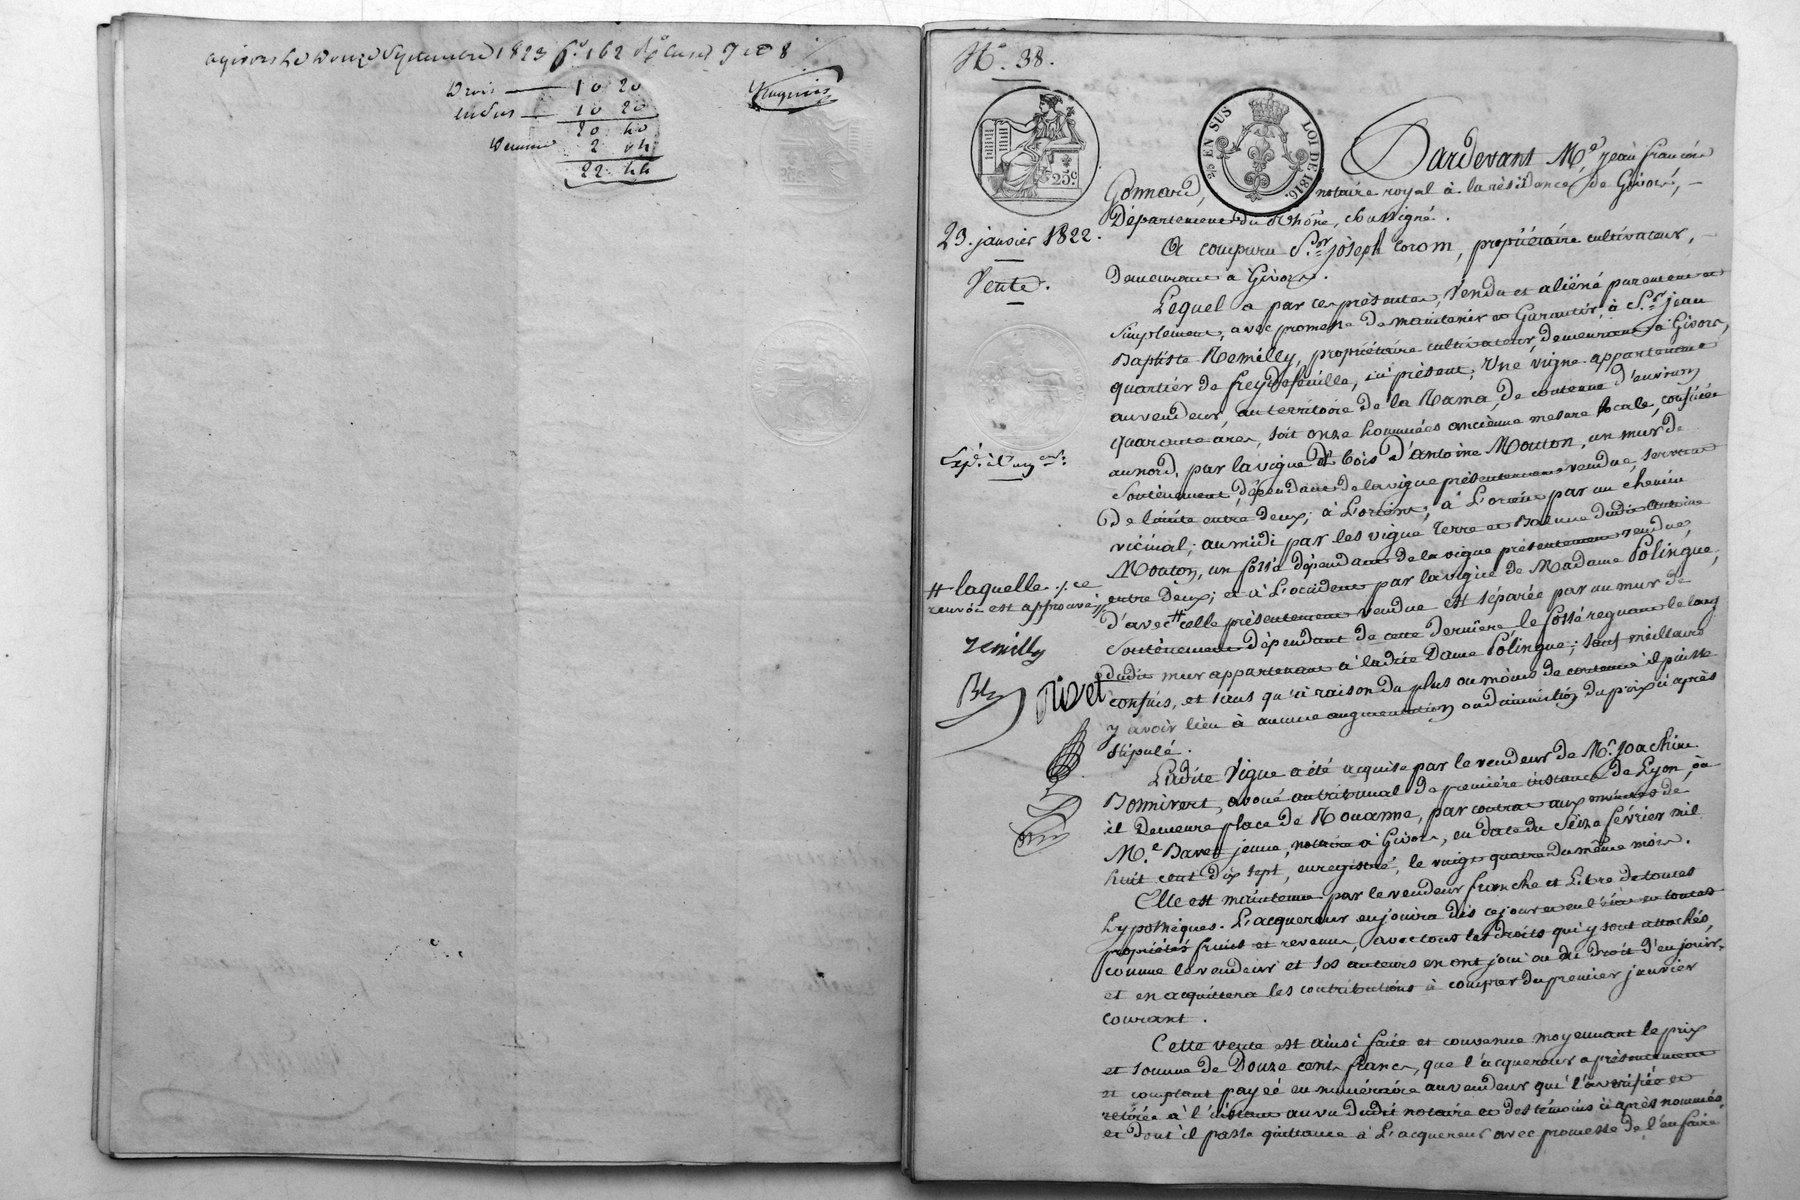 a givors le douze Septembre 1823 f° 162 R° cases 7 et 8
Droit 10 20
indus 10 20
20 40
Decime 2 04
22 44
N° 38.
25c
2/5 EN SUS LOI DE 1816.
Pardevant M.e jean françois
Gonnard, notaire royal à la résidence de Givors,
Département du Rhône, soussigné.
23. janvier 1822.
Vente.
A comparu S.r joseph Corom, propriétaire cultivateur,
demeurant à Givors.
Lequel a par ces présentes, vendu et aliéné purement et
simplement, avec promesse de maintenir et Garantir, à S.r jean
Baptiste Remilly, propriétaire cultivateur, demeurant à Givors,
quartier de freydefeuille, ici présent; Une vigne appartenante
au vendeur, au territoire de la Rama, de contenue d'environ
quarante ares, soit onze hommées ancienne mesure locale, confinée
au nord, par la vigne et bois d'Antoine Mouton, un mur de
soutènement dépendant de la vigne présentement vendue, servant
de limite entre deux; à l'orient, à l'orient par un chemin
vicinal; au midi par les vigne terre et Balme dudit Antoine
Mouton, un fossé dépendant de la vigne présentement vendue,
entre deux; et à l'occident par la vigne de Madame Polingue,
d'avec # celle présentement vendue est séparée par un mur de
soutènement dépendant de cette dernière le fossé regnant le long
dudit mur appartenant à ladite Dame Polingue; sauf meilleurs
confins, et sans qu'à raison du plus ou moins de contenue il puisse
y avoir lieu à aucune augmentation ou diminution du prix ci après
stipulé.
# laquelle ./. ce
renvoi est approuvé
remilly
Rivet
Ladite Vigne a été acquise par le vendeur de M.r Joachim
Bonnivert, avoué au tribunal de première instance de Lyon, où
il demeure place de Rouanne, par contrat aux minutes de
M.e Baret jeune, notaire à Givors, en date du Seize février mil
huit cent dix sept, enregistré, le vingt quatre du même mois.
Elle est maintenue par le vendeur franche et libre de toutes
hypothèques. L'acquereur en jouira dès ce jour et en l'état en toutes
propriétés fruits et revenus, avec tous les droits qui y sont attachés,
comme le vendeur et ses auteurs en ont joui ou dû droit d'en jouir,
et en acquittera les contributions à compter du premier janvier
courant.
Cette vente est ainsi faite et convenue moyennant le prix
et somme de Douze cents francs, que l'acquereur a présentement
et comptant payée en numéraire au vendeur qui l'a vérifiée et
retirée à l'instant au vu dudit notaire et des témoins ci après nommés,
et dont il passe quittance à l'acquereur avec promesse de l'en faire